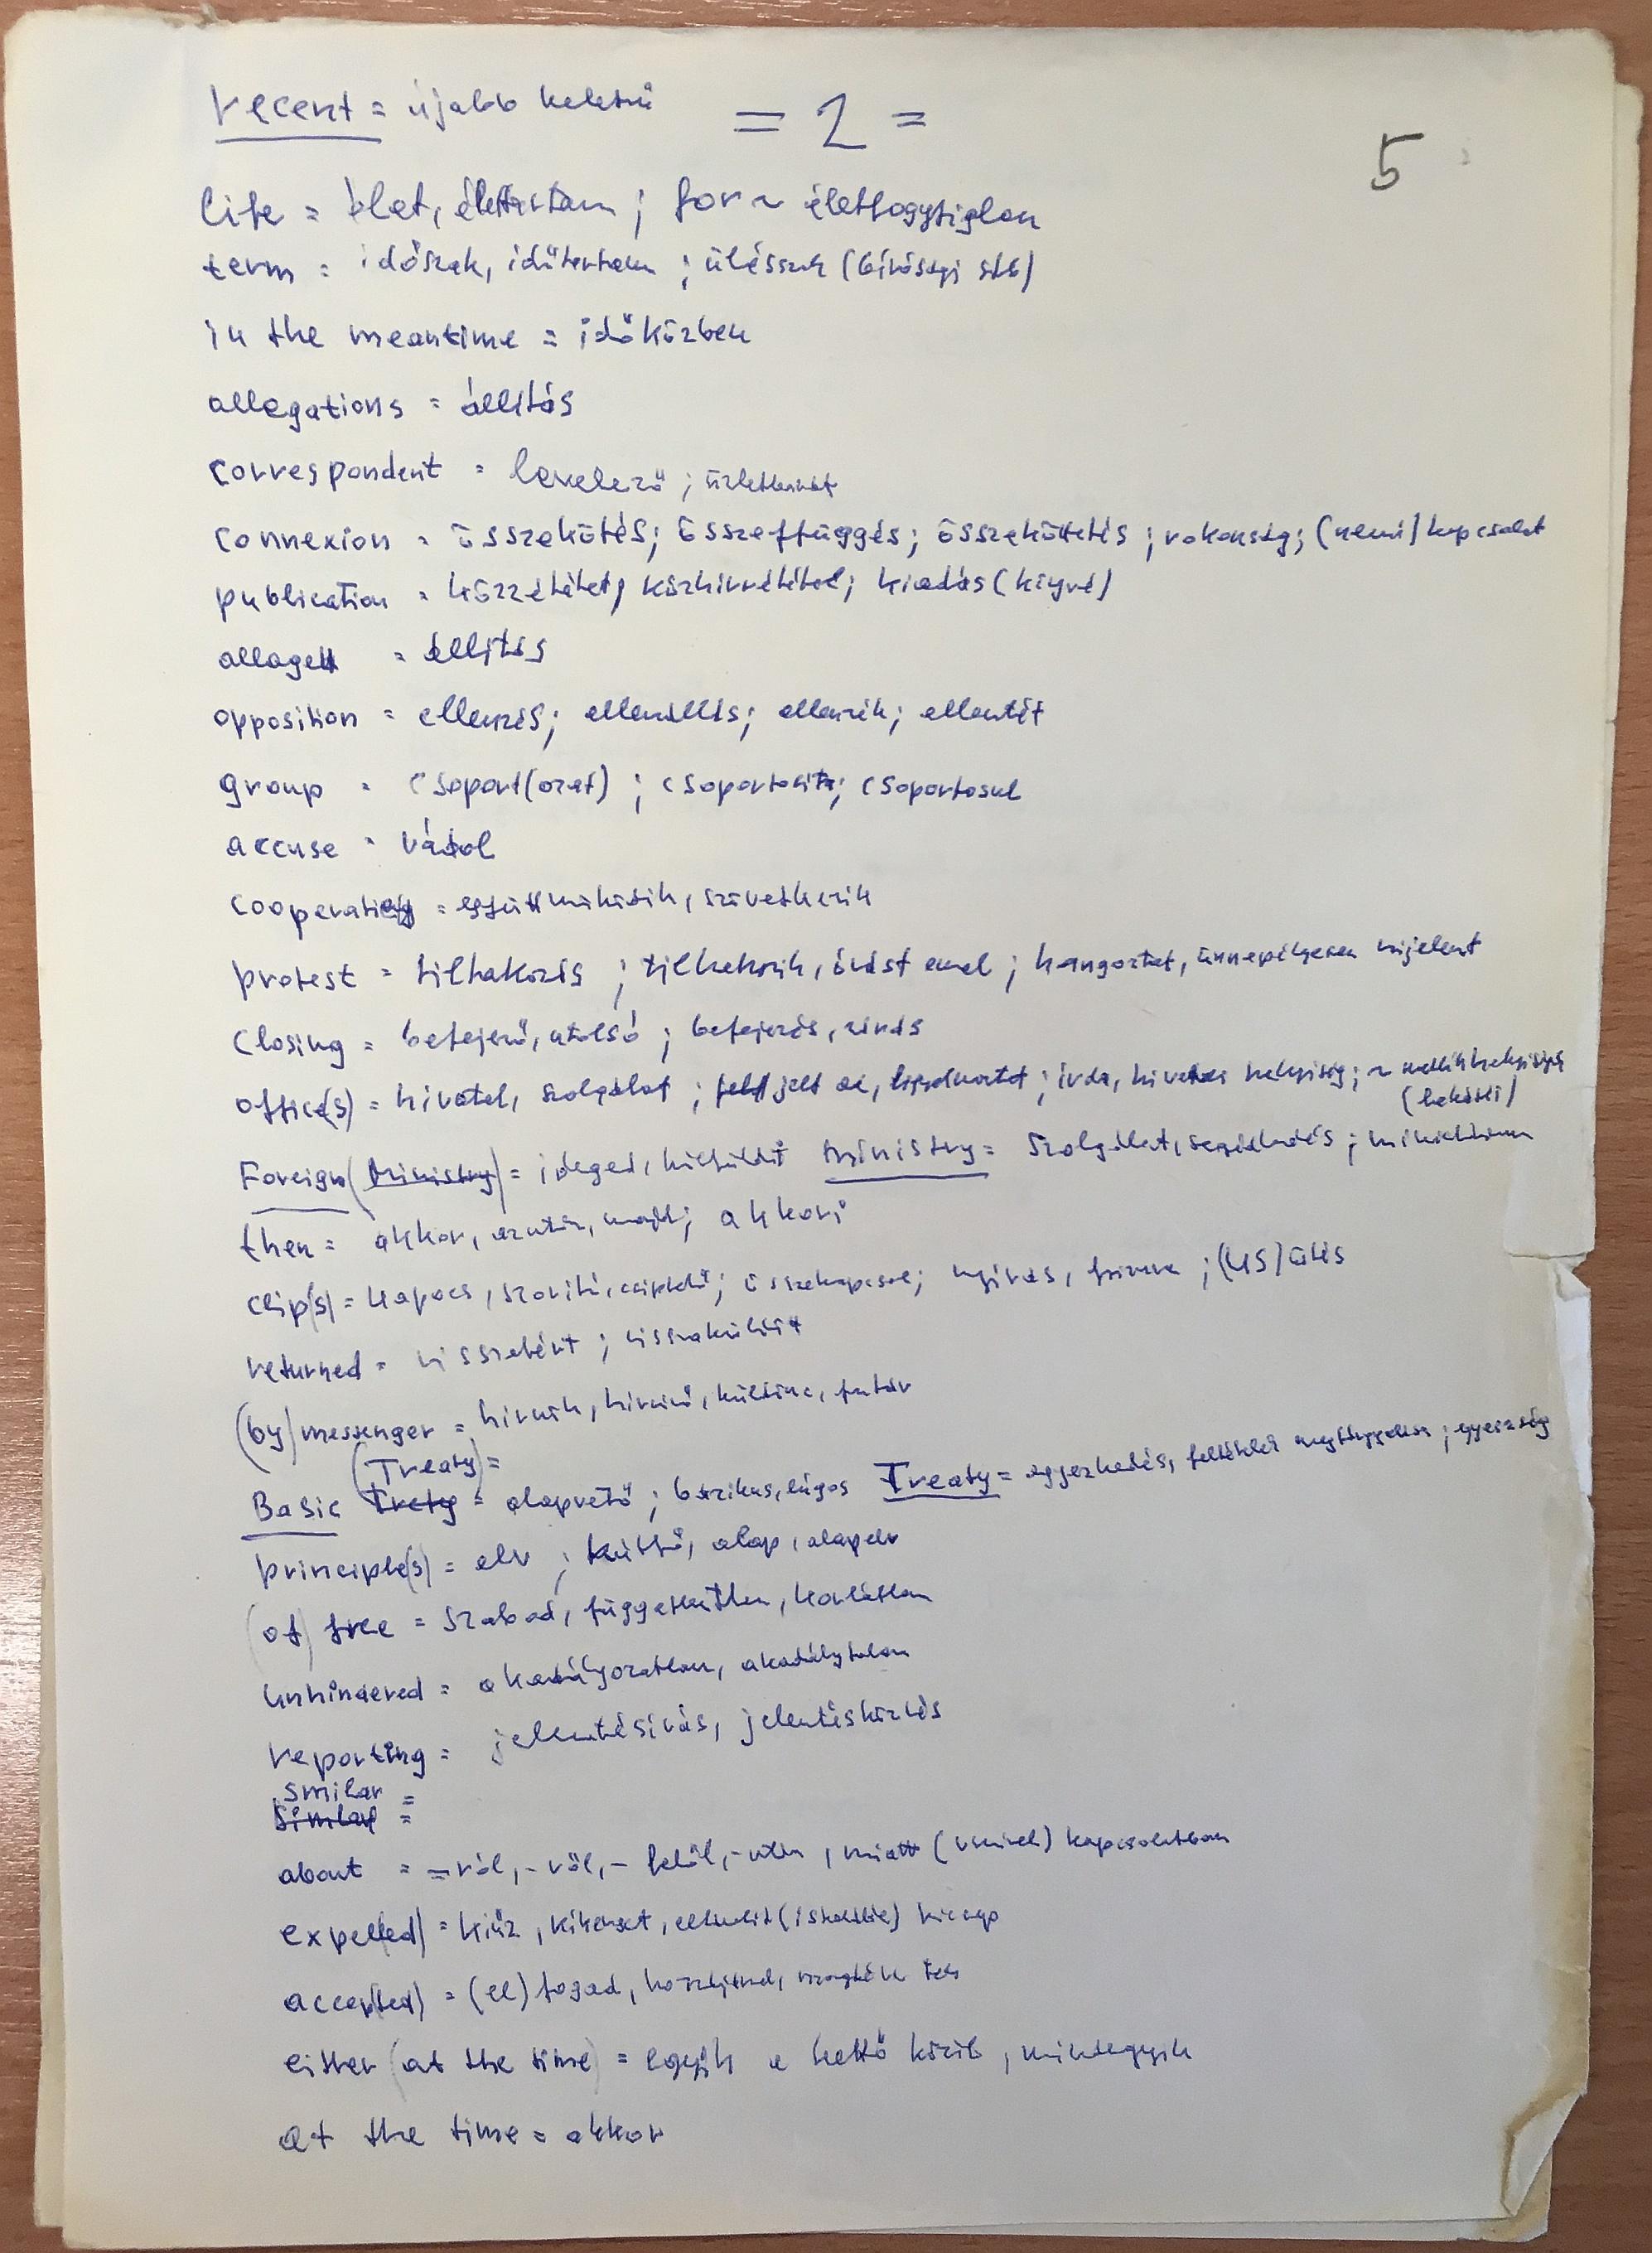 recent = újabb keletű = 2 = 5
life = élet, élettartam; for ~ élethogytiglan
term = időszak, időtartam; ülésszak (bírósági stb)
in the meantime = időközben
allegations = állítás
correspondent = levelező;
connexion = összekötés; összeffüggés; összeköttetés; rokonság; (nemi) kapcsolat
publication = közzététel, közhirrététel; kiadás (könyvé)
allaged = állítás
opposition = ellenzés; ellenállás; ellenzék; ellentét
group = csoport(ozat); csoportosít; csoportosul
accuse = vádol
= együttműködik, szövetkezik
protest = tiltakozás; tiltakozik, óvást emel; hangoztat, ünnepélyesen kijelent
closing = befejező, utolsó; befejezés, zárás
office(s) = hivatal, szolgálat; iroda, hivatali helyiség; ~ mellékhelyiségek
Foreign (Ministry) = idegen, külföldi ministry = szolgálat, segédkezés; minisztérium
then = akkor, azután, majd; akkori
clip(s) = kapocs, szorító, csiptető; összekapcsol; nyírás, (US) ütés
returned = visszatért; visszaküldött
(by) messenger = hírnök, hírvivő, küldönc, futár
(Treaty) =
Basic Trety = alapvető; bázikus, lúgos Treaty = egyezkedés, feltételek megtárgyalása; egyezség
principle(s) = elv; kútfő, alap, alapelv
(of) free = szabad, független, korlátlan
unhindered = akadályozatlan, akadálytalan
reporting = jelentésírás, jelentésközlés
similar =
Similar =
about = -ról, -ről, - felől, - után, miatt (vmivel) kapcsolatban
expel(led) = kiűz, kikerget, (iskolából) kicsap
accep(ted) = (el) fogad, hozzájárul,
either (at the time) = egyik a kettő közül, mindegyik
at the time = akkor